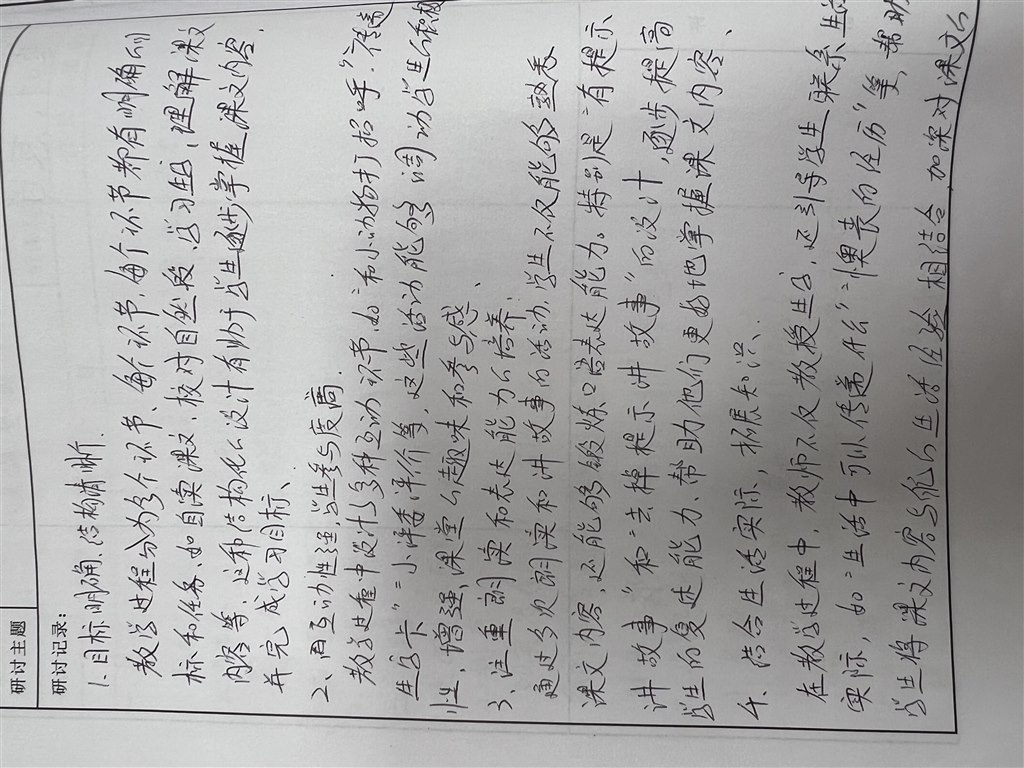 研讨主题
研讨记录：
1.目标明确、结构清晰.
教学过程分为多个环节、每个环节，每个环节都有明确的
标和任务、如自读课文，校对自然段、学习生字，理解课文
内容等，这种结构化的设计有助于学生逐步掌握课文内容，
并完成学习目标、
2、互动性强，学生参与度高.
教学过程中设计了多种互动环节，如"和小动物打招呼"，
生字卡""小评委评价等，这些活动能够调动学生的积极
性，增强课堂的趣味和参与感、
3、注重朗读和表达能力的培养，
通过多次朗读和讲故事的活动，学生不仅能够熟悉
课文内容，还能够锻炼口语表达能力。特别是"有提示
讲故事"和"去掉提示讲故事"的设计，逐步提高
学生的复述能力、帮助他们更好地掌握课文内容、
4、结合生活实际，拓展知识、
在教学过程中，教师不仅教授生字，还引导学生联系生
实际，如"生活中可以传递什么""懊丧的经历"等，帮助
学生将课文内容与他的生活经验相结合 加深对课文的